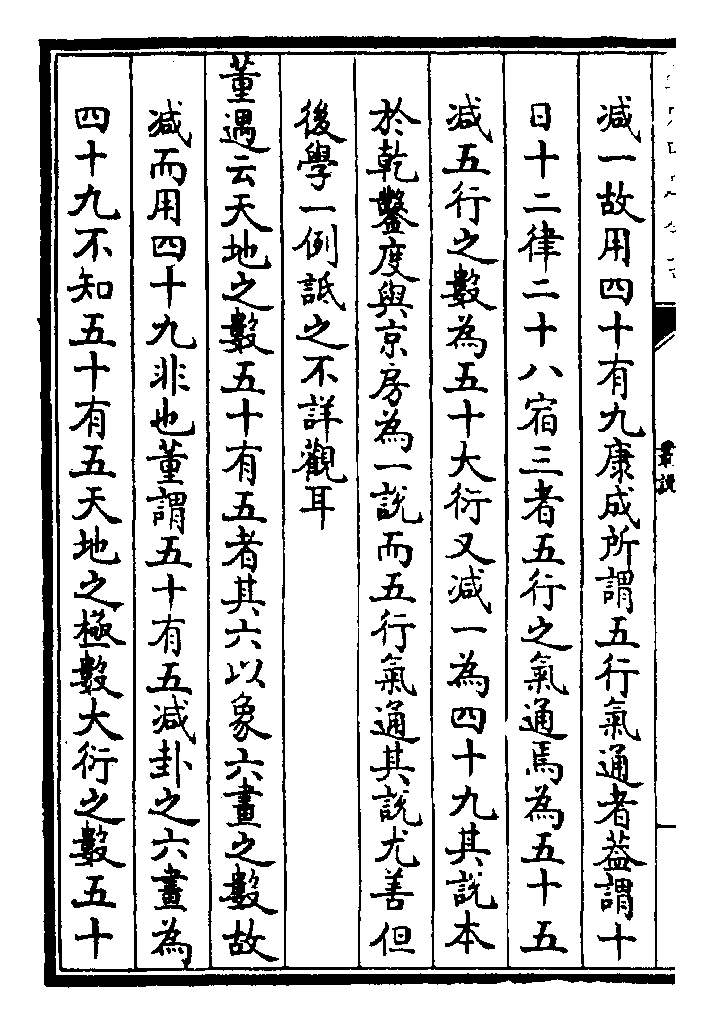 減一故用四十有九康成所謂五行氣通者葢謂十
日十二律二十八宿三者五行之氣通焉為五十五
減五行之數為五十大衍又減一為四十九其説本
於乾鑿度與京房為一説而五行氣通其説尤善但
後學一例詆之不詳觀耳
董遇云天地之數五十有五者其六以象六畫之數故
減而用四十九非也董謂五十有五減卦之六畫為
四十九不知五十有五天地之極數大衍之數五十
叢說